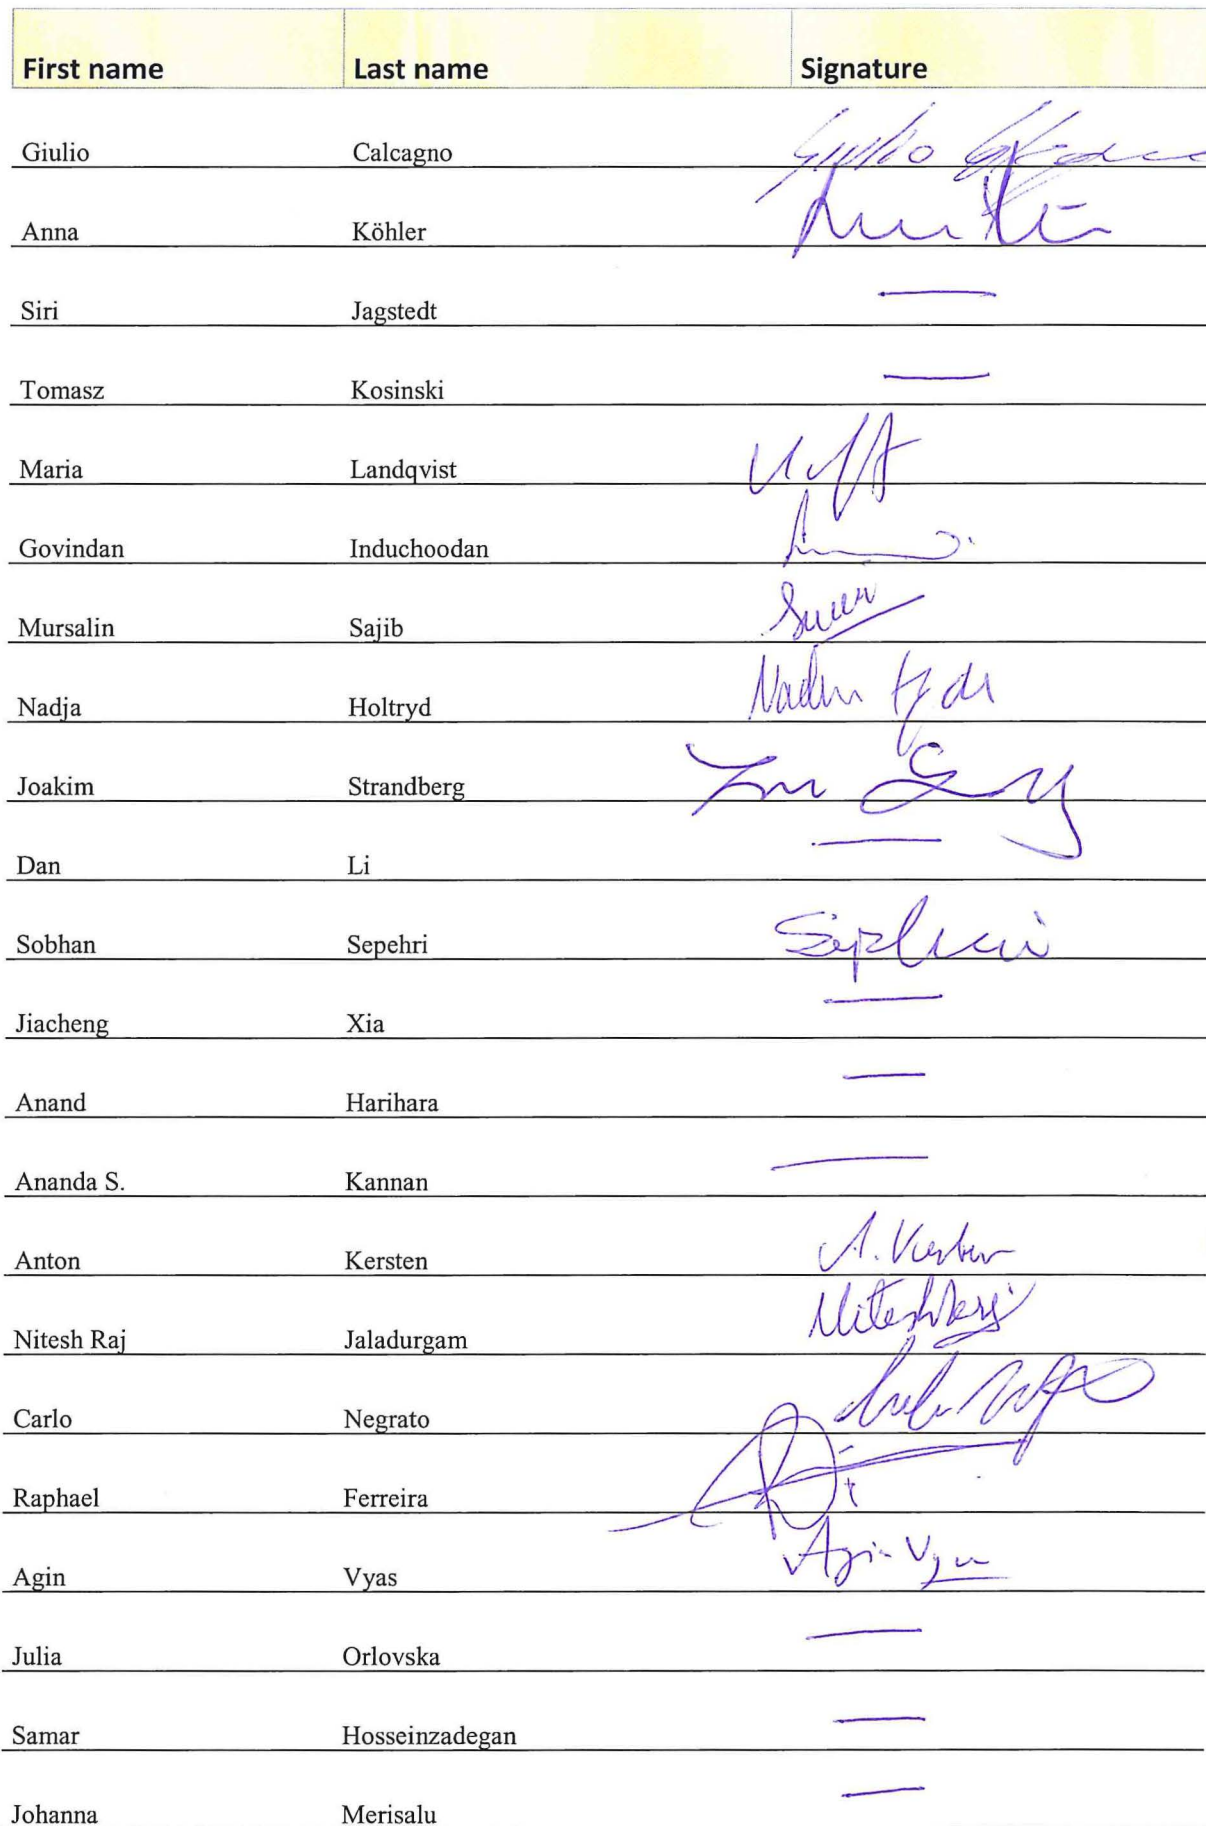 First name Last name Signature
Giulio Calcagno Giulio Calcagno
Anna Köhler
Siri Jagstedt —
Tomasz Kosinski —
Maria Landqvist
Govindan Induchoodan
Mursalin Sajib
Nadja Holtryd
Joakim Strandberg
Dan Li —
Sobhan Sepehri Sepehri
Jiacheng Xia —
Anand Harihara —
Ananda S. Kannan —
Anton Kersten A. Kersten
Nitesh Raj Jaladurgam Nitesh Raj
Carlo Negrato
Raphael Ferreira
Agin Vyas Agin Vyas
Julia Orlovska —
Samar Hosseinzadegan —
Johanna Merisalu —